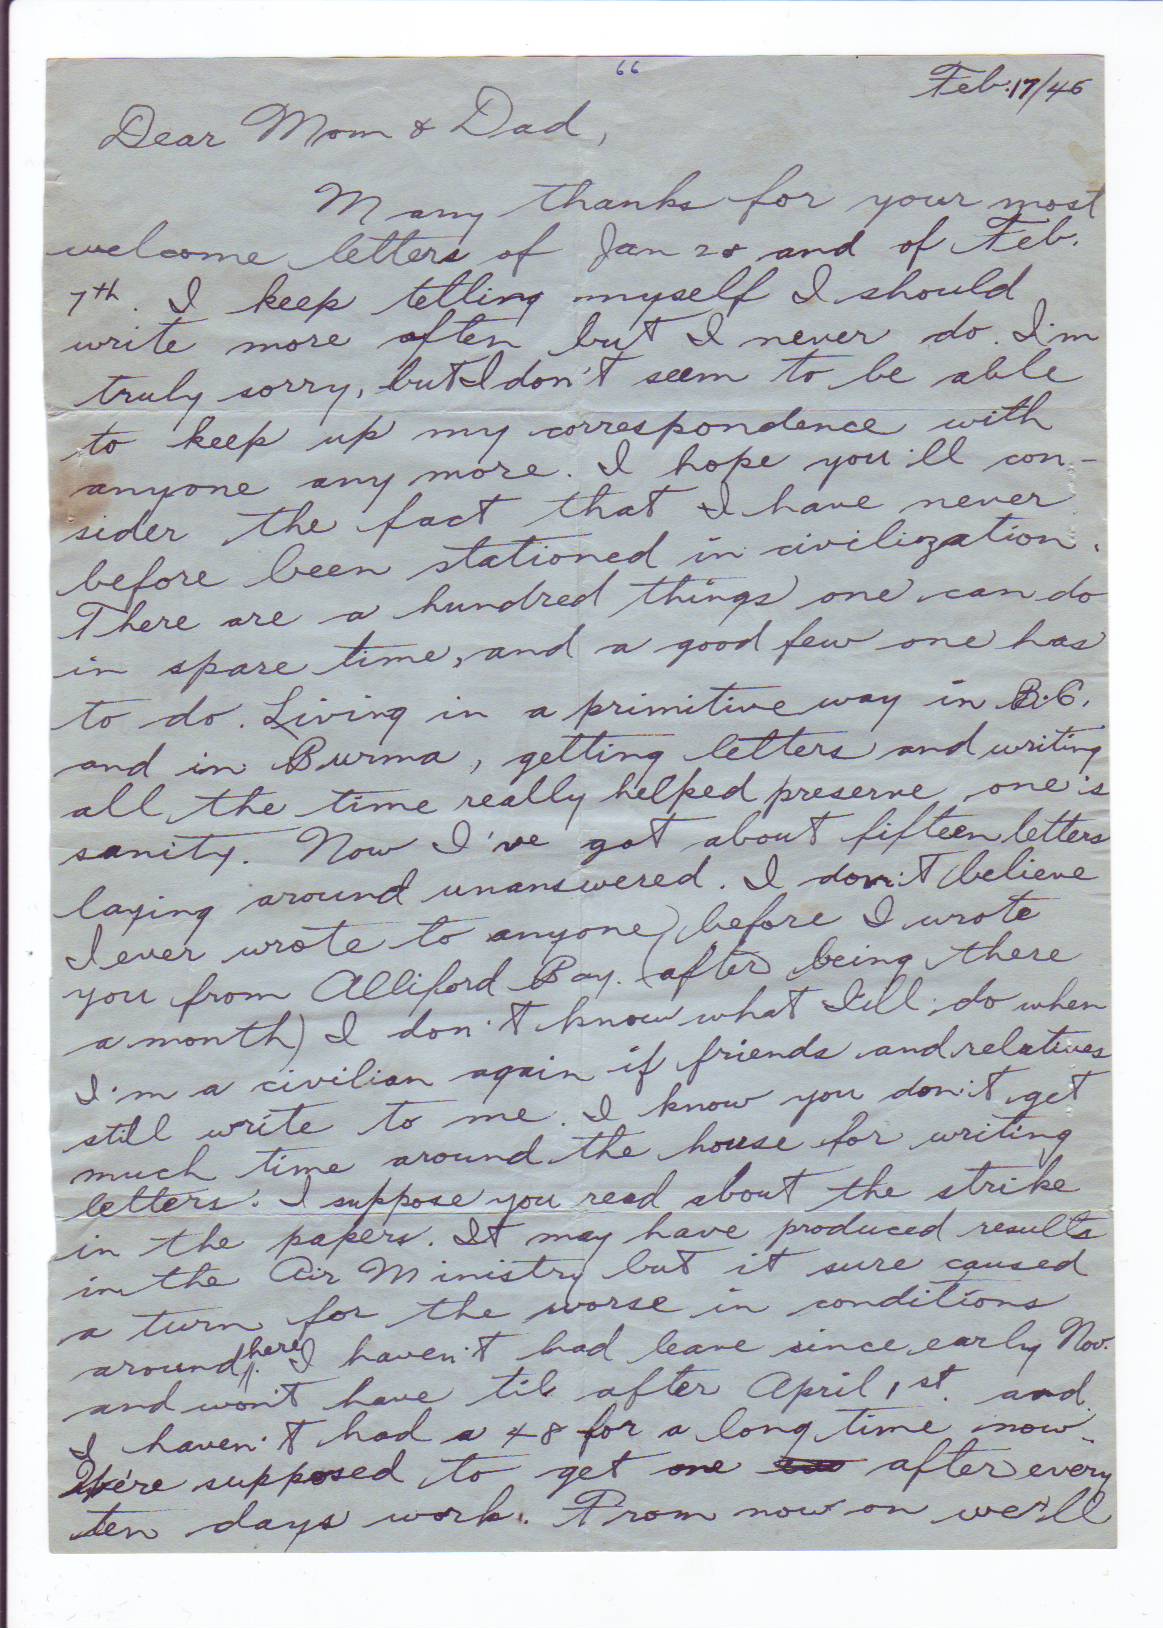 66
Feb. 17/46
Dear Mom & Dad,
Many thanks for your most
welcome letters of Jan 28 and of Feb.
7th. I keep telling myself I should
write more often but I never do. I'm
truly sorry, but I don't seem to be able
to keep up my correspondence with
anyone any more. I hope you'll con-
sider the fact that I have never
before been stationed in civilization.
There are a hundred things one can do
in spare time, and a good few one has
to do. Living in a primitive way in B.C.
and in Burma, getting letters and writing
all the time really helped preserve one's
sanity. Now I've got about fifteen letters
laying around unanswered. I don't believe
I ever wrote to anyone) before I wrote
you from Alliford Bay. (after being there
a month) I don't know what I'll do when
I'm a civilian again if friends and relatives
still write to me. I know you don't get
much time around the house for writing
letters. I suppose you read about the strike
in the papers. It may have produced results
in the Air Ministry but it sure caused
a turn for the worse in conditions
around here. I haven't had leave since early Nov.
and won't have til after April 1st. and
I haven't had a 48 for a long time now.
We're supposed to get one after every
ten days work. From now on we'll